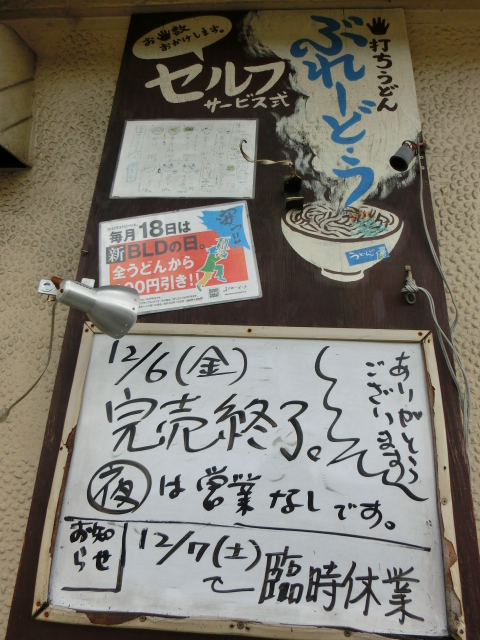 お✋数
おかけします。
セルフ
サービス式
✋打ちうどん
ぶれーどう
うどん
毎月18日は
新BLDの日。
全うどんから
00円引き!!
12/6(金)
完売終了。
ありがとう
ございます
夜は営業なしです。
お知
らせ
12/7(土)
臨時休業